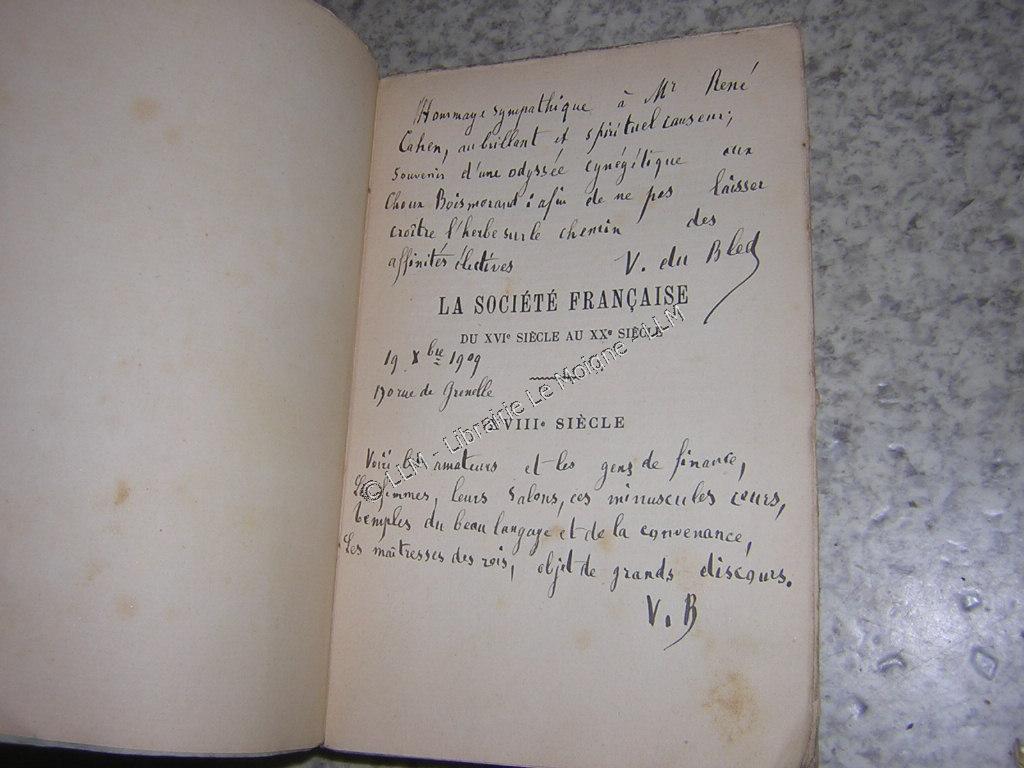 Hommage sympathique à Mr René
Cahen, au brillant et spirituel causeur;
souvenir d'une odyssée cynégétique aux
Choux Boismorand : afin de ne pas laisser
croître l'herbe sur le chemin des
affinités électives V. du Bled
LA SOCIÉTÉ FRANÇAISE
DU XVIe SIÈCLE AU XXe SIÈCLE
19 Xbre 1909
170 rue de Grenelle
VIIIe SIÈCLE
Voici les amateurs et les gens de finance,
Les femmes, leurs salons, ces minuscules cours,
temples du beau langage et de la convenance,
Les maîtresses des rois, objet de grands discours.
V. B
© LLM - Librairie Le Moigne - LLM